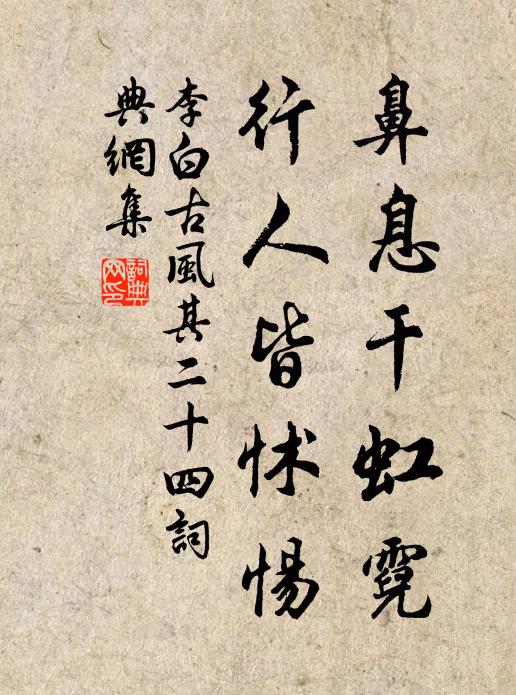 鼻息干虹霓
行人皆怵惕
李白古風其二十四詞
典網集
詞典
网印